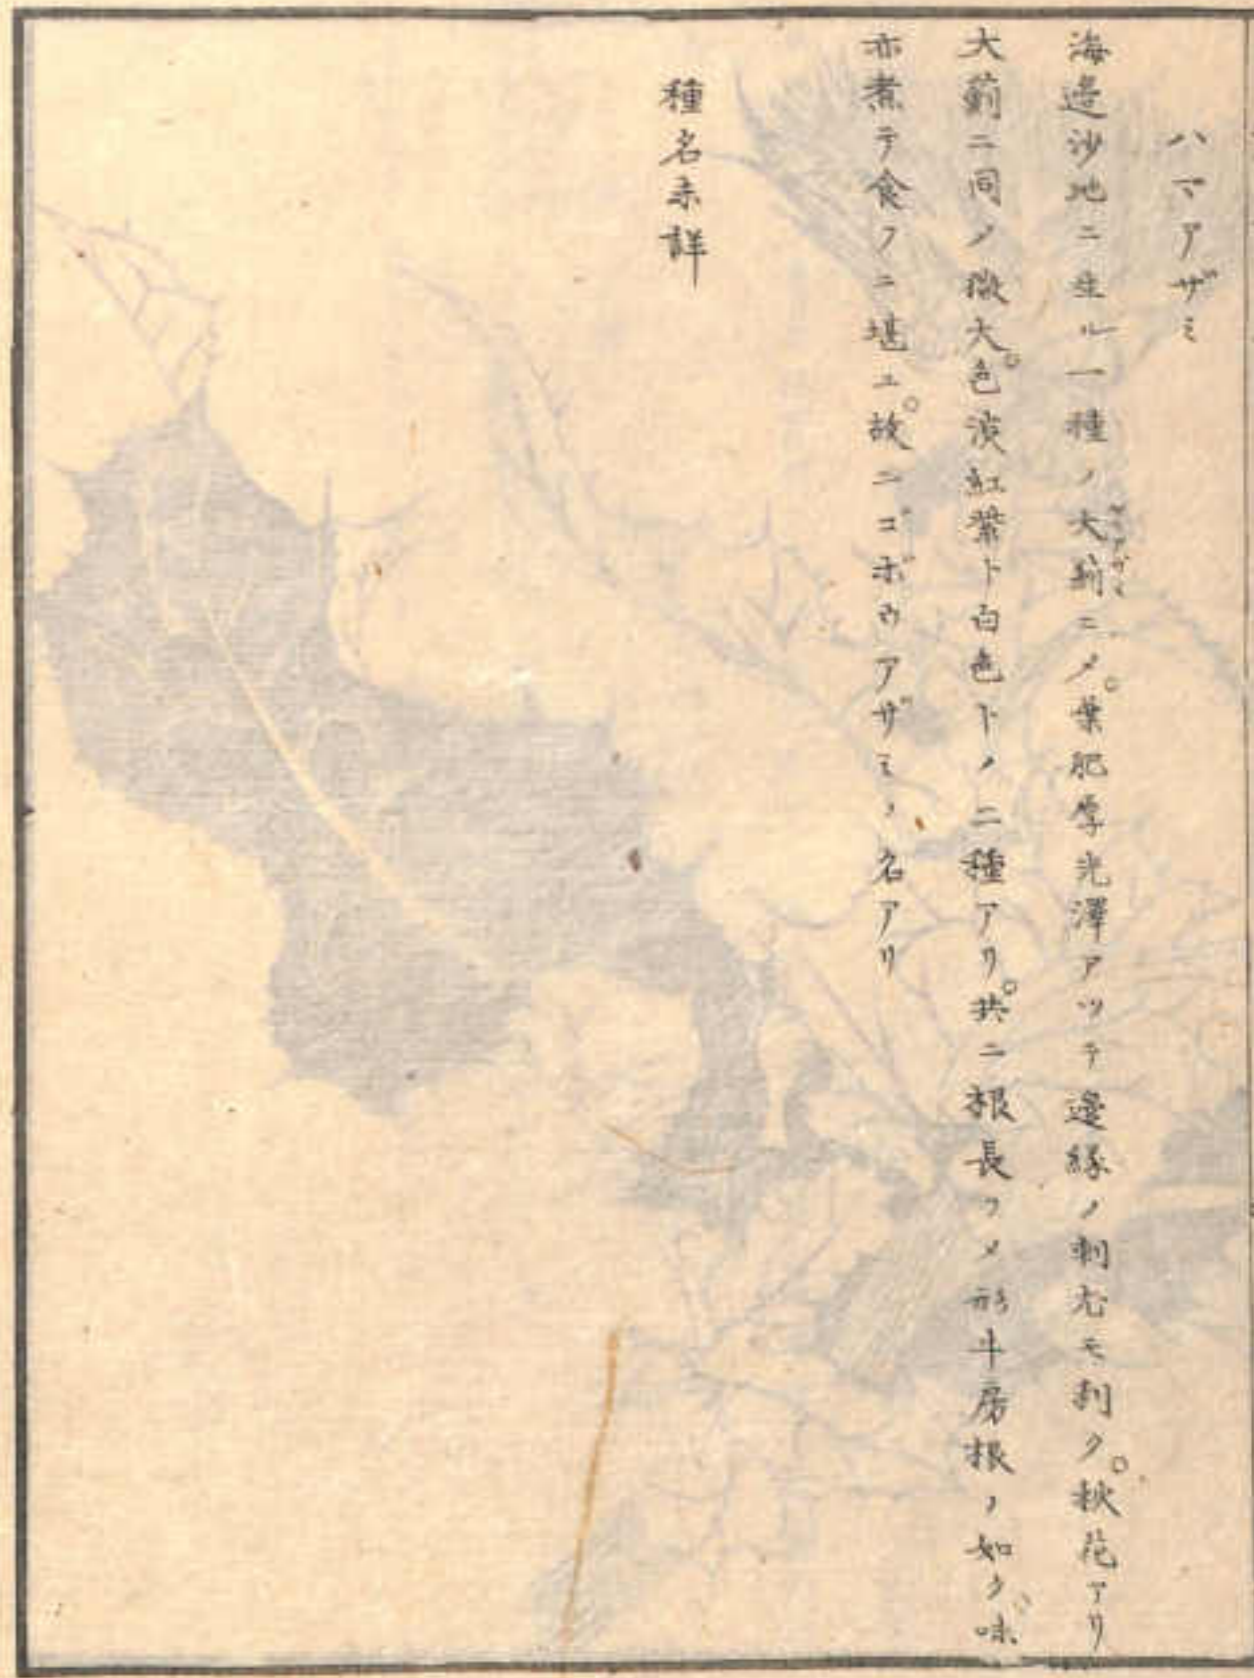 ハマアザミ
海邊沙地ニ生ル一種ノ大薊ニメ。葉肥厚光澤アツテ邊緣ノ刺尤モ利ク。秋花アリ
大薊ニ同ノ微大。色淡紅紫ト白色トノ二種アリ。共ニ根長クメ形牛房根ノ如ク。味
亦煮テ食フニ堪ユ。故ニゴボウアザミノ名アリ
種名未詳